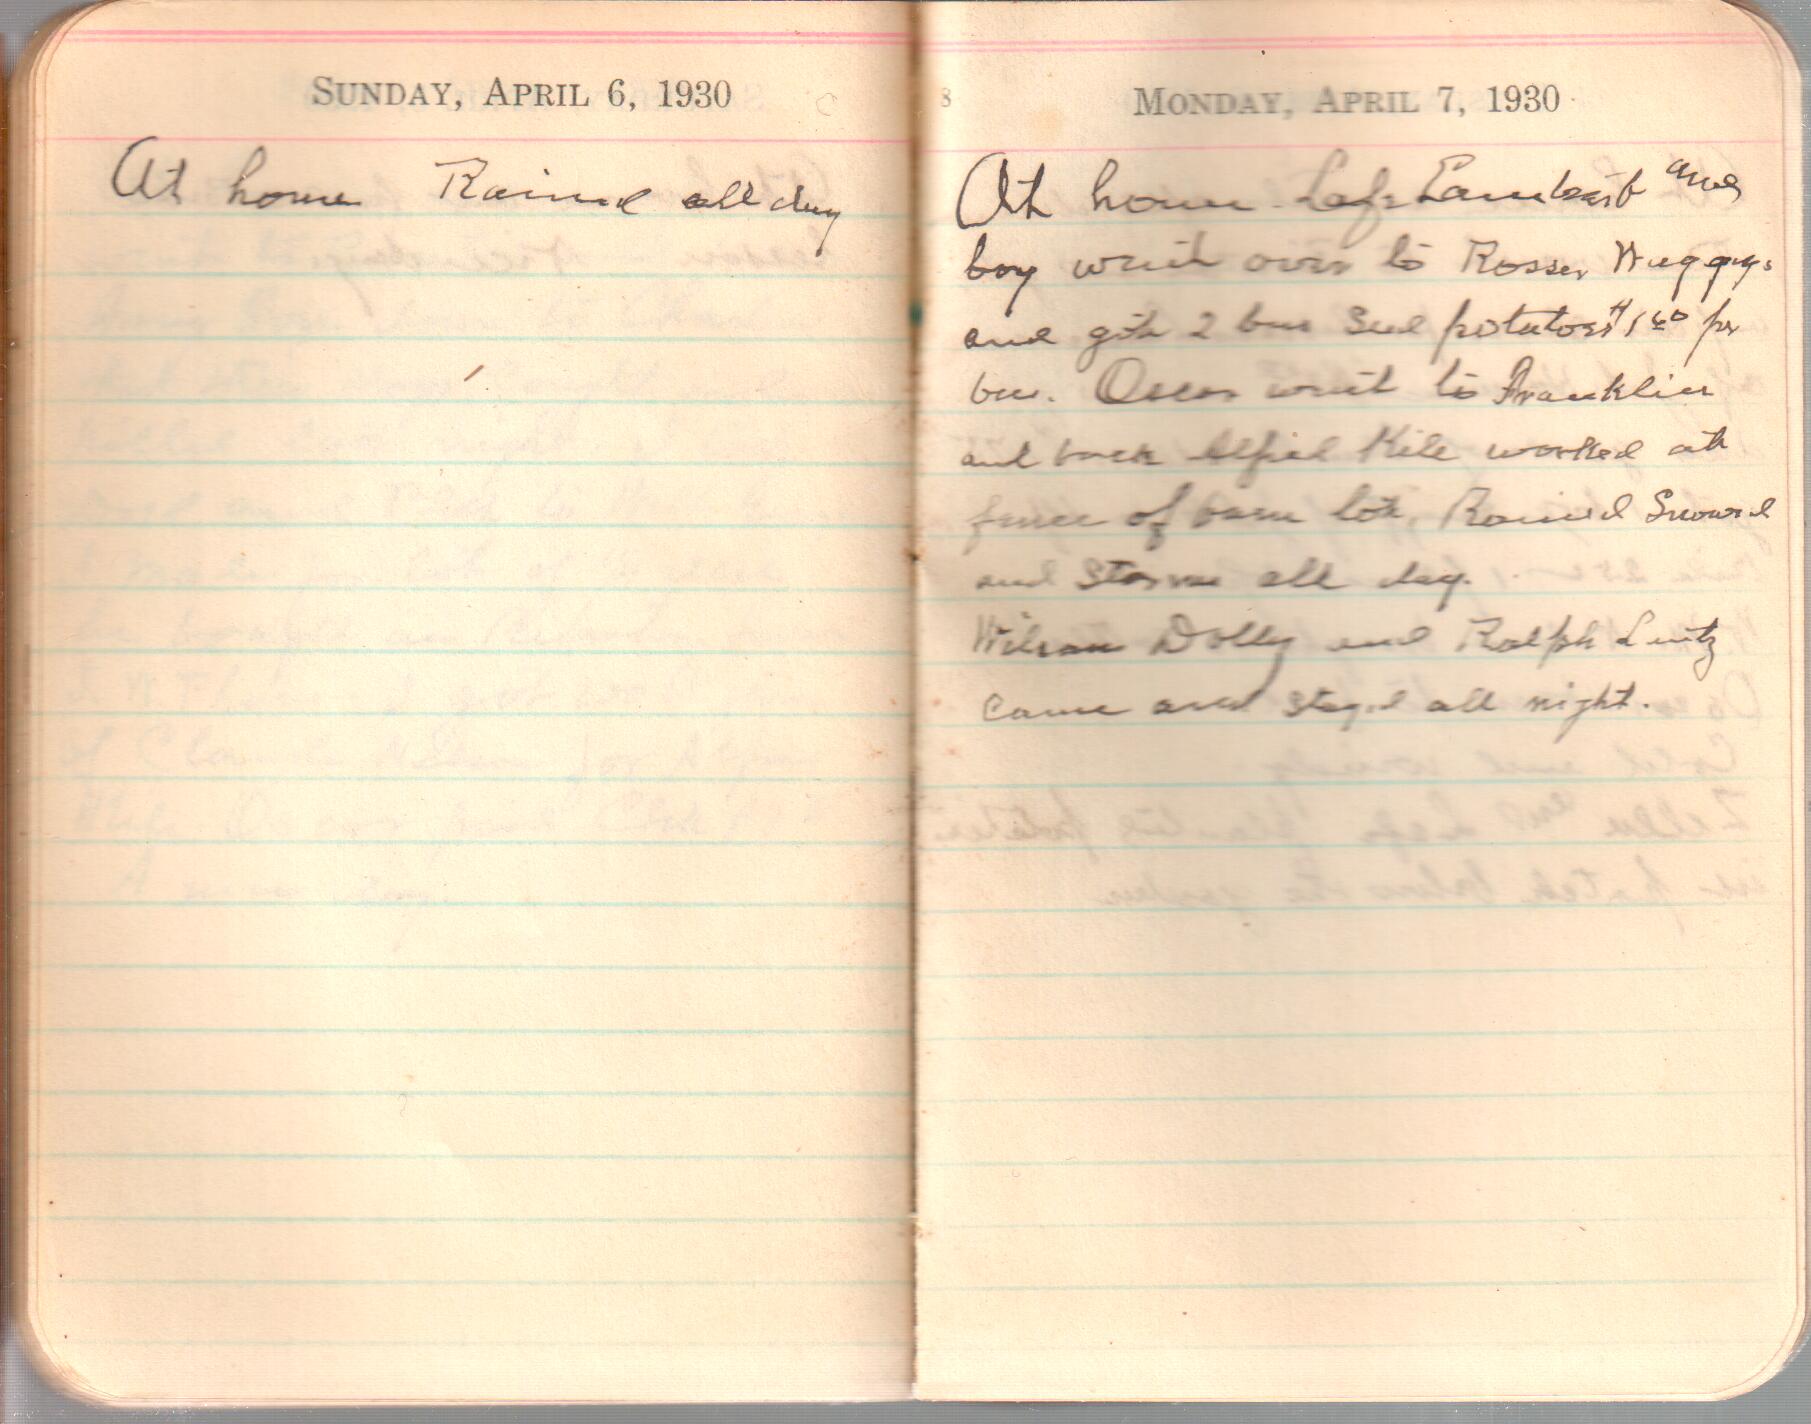 SUNDAY, APRIL 6, 1930
At home Rained all day
MONDAY, APRIL 7, 1930
At home Lafe Lambert and
boy went over to Rosser
and got 2 bus Seed potatoes $1 60 per
bus. Oscar went to Franklin
and back Alfred Kile worked at
fence of barn lot, Rained Snowed
and Storme all day.
Wilson Dolly and Ralph Lentz
came and stayed all night.